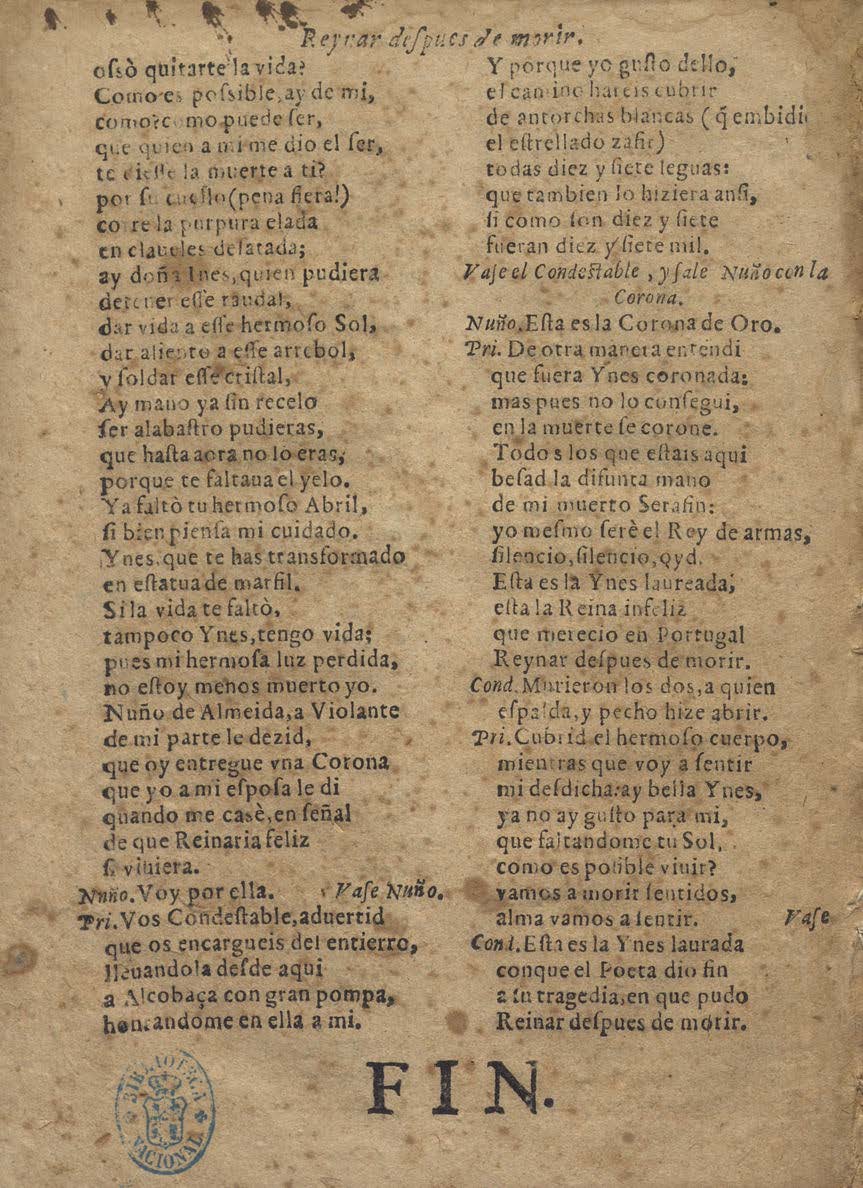 Reynar deſpues de morir.
oſsò quitarte la vida?
Como es poſsible, ay de mi,
como? como puede ſer,
que quien a mi me dio el ſer,
te dieſſe la muerte a ti?
por ſu cuello (pena fiera!)
corre la purpura elada
en claueles deſatada;
ay doña Ines, quien pudiera
detener eſſe raudal,
dar vida a eſſe hermoſo Sol,
dar aliento a eſſe arrebol,
y ſoldar eſſe criſtal,
Ay mano ya ſin recelo
ſer alabaſtro pudieras,
que haſta aora no lo eras,
porque te faltaua el yelo.
Ya faltò tu hermoſo Abril,
ſi bien pienſa mi cuidado.
Ynes, que te has transformado
en eſtatua de marfil.
Si la vida te faltò,
tampoco Ynes, tengo vida;
pues mi hermoſa luz perdida,
no eſtoy menos muerto yo.
Nuño de Almeida, a Violante
de mi parte le dezid,
que oy entregue vna Corona
que yo a mi eſpoſa le di
quando me casè, en ſeñal
de que Reinaria feliz
ſi viuiera.
Nuño. Voy por ella. Vaſe Nuño.
Pri. Vos Condeſtable, aduertid
que os encargueis del entierro,
lleuandola deſde aqui
a Alcobaça con gran pompa,
honrandome en ella a mi.
Y porque yo guſto dello,
el camino hareis cubrir
de antorchas blancas (q̃ embidie
el eſtrellado zafir)
todas diez y ſiete leguas:
que tambien lo hiziera anſi,
ſi como ſon diez y ſiete
fueran diez y ſiete mil.
Vaſe el Condeſtable, y ſale Nuño con la
Corona.
Nuño. Eſta es la Corona de Oro.
Pri. De otra manera entendi
que fuera Ynes coronada:
mas pues no lo conſegui,
en la muerte ſe corone.
Todos los que eſtais aqui
beſad la difunta mano
de mi muerto Serafin:
yo meſmo ſerè el Rey de armas,
ſilencio, ſilencio, oyd.
Eſta es la Ynes laureada,
eſta la Reina infeliz
que merecio en Portugal
Reynar deſpues de morir.
Cond. Murieron los dos, a quien
eſpalda, y pecho hize abrir.
Pri. Cubrid el hermoſo cuerpo,
mientras que voy a ſentir
mi deſdicha: ay bella Ynes,
ya no ay guſto para mi,
que faltandome tu Sol,
como es poſible viuir?
vamos a morir ſentidos,
alma vamos a ſentir. Vaſe
Cond. Eſta es la Ynes laurada
conque el Poeta dio fin
a ſu tragedia, en que pudo
Reinar deſpues de morir.
FIN.
BIBLIOTECA
NACIONAL